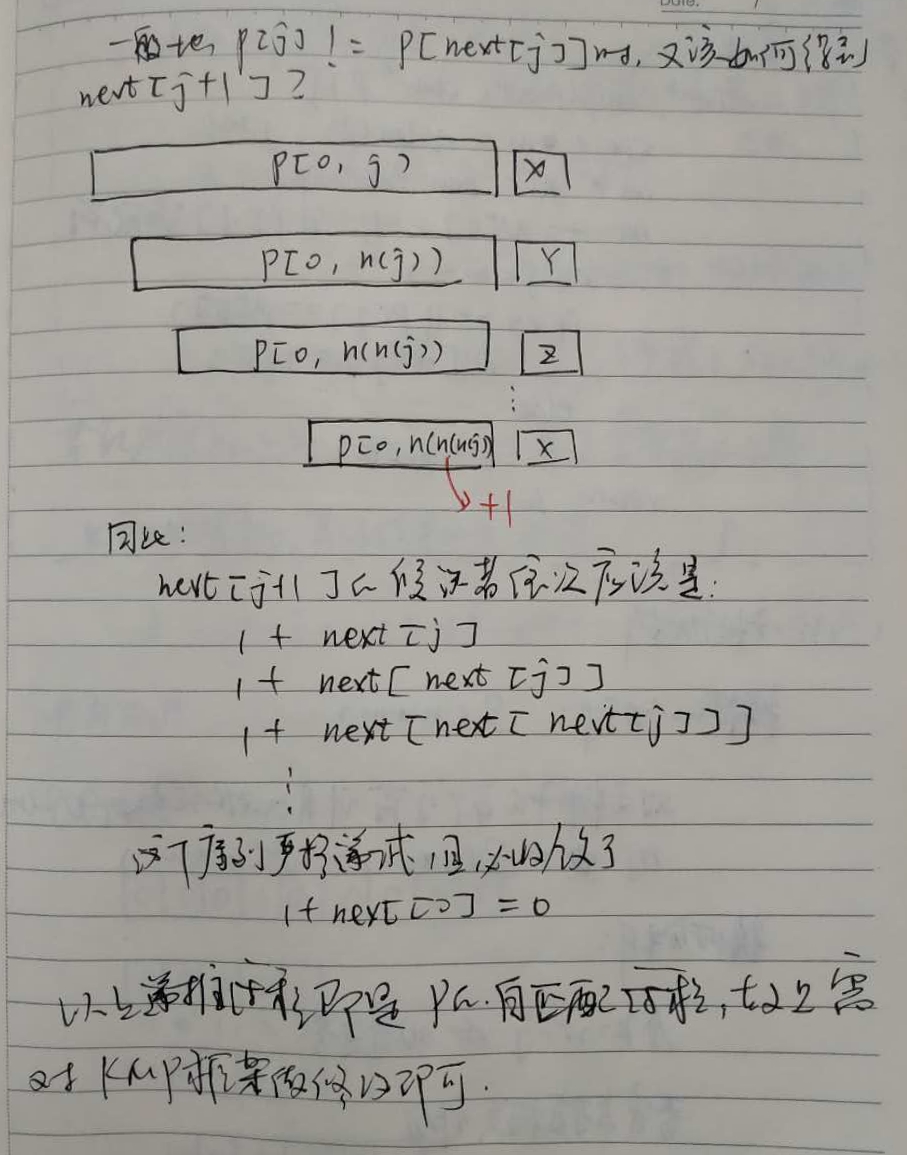 Date.
一般地, P[j] != P[next[j]]时, 又该如何得到
next[j+1]?
P[0, j) X
P[0, n(j)) Y
P[0, n(n(j)) Z
⋮
P[0, n(n(n(j)) X
+1
因此:
next[j+1]的候选者依次应该是:
1 + next[j]
1 + next[next[j]]
1 + next[next[next[j]]]
⋮
这个序列严格递减,且必收敛于
1+next[0] = 0
以上递推过程即是P的自匹配过程,故只需
对KMP框架做修改即可.